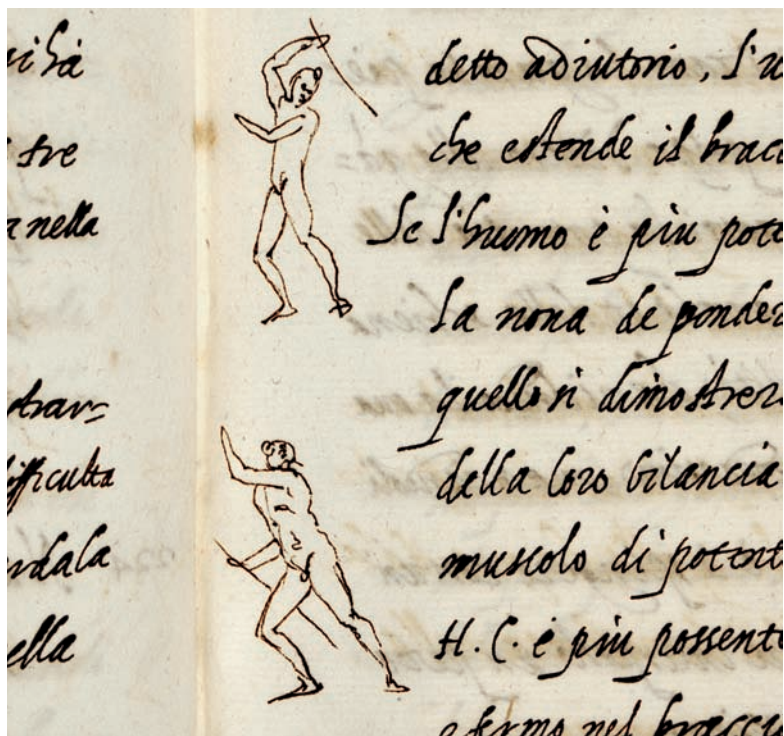 tre
nella
difficulta
ella
detto adiutorio, l'
che estende il brac
Se l'huomo è piu pote
la nona de ponder
quello si dimostrera
della loro bilancia
muscolo di potent
H. C. è piu possente
e fermo nel braccio